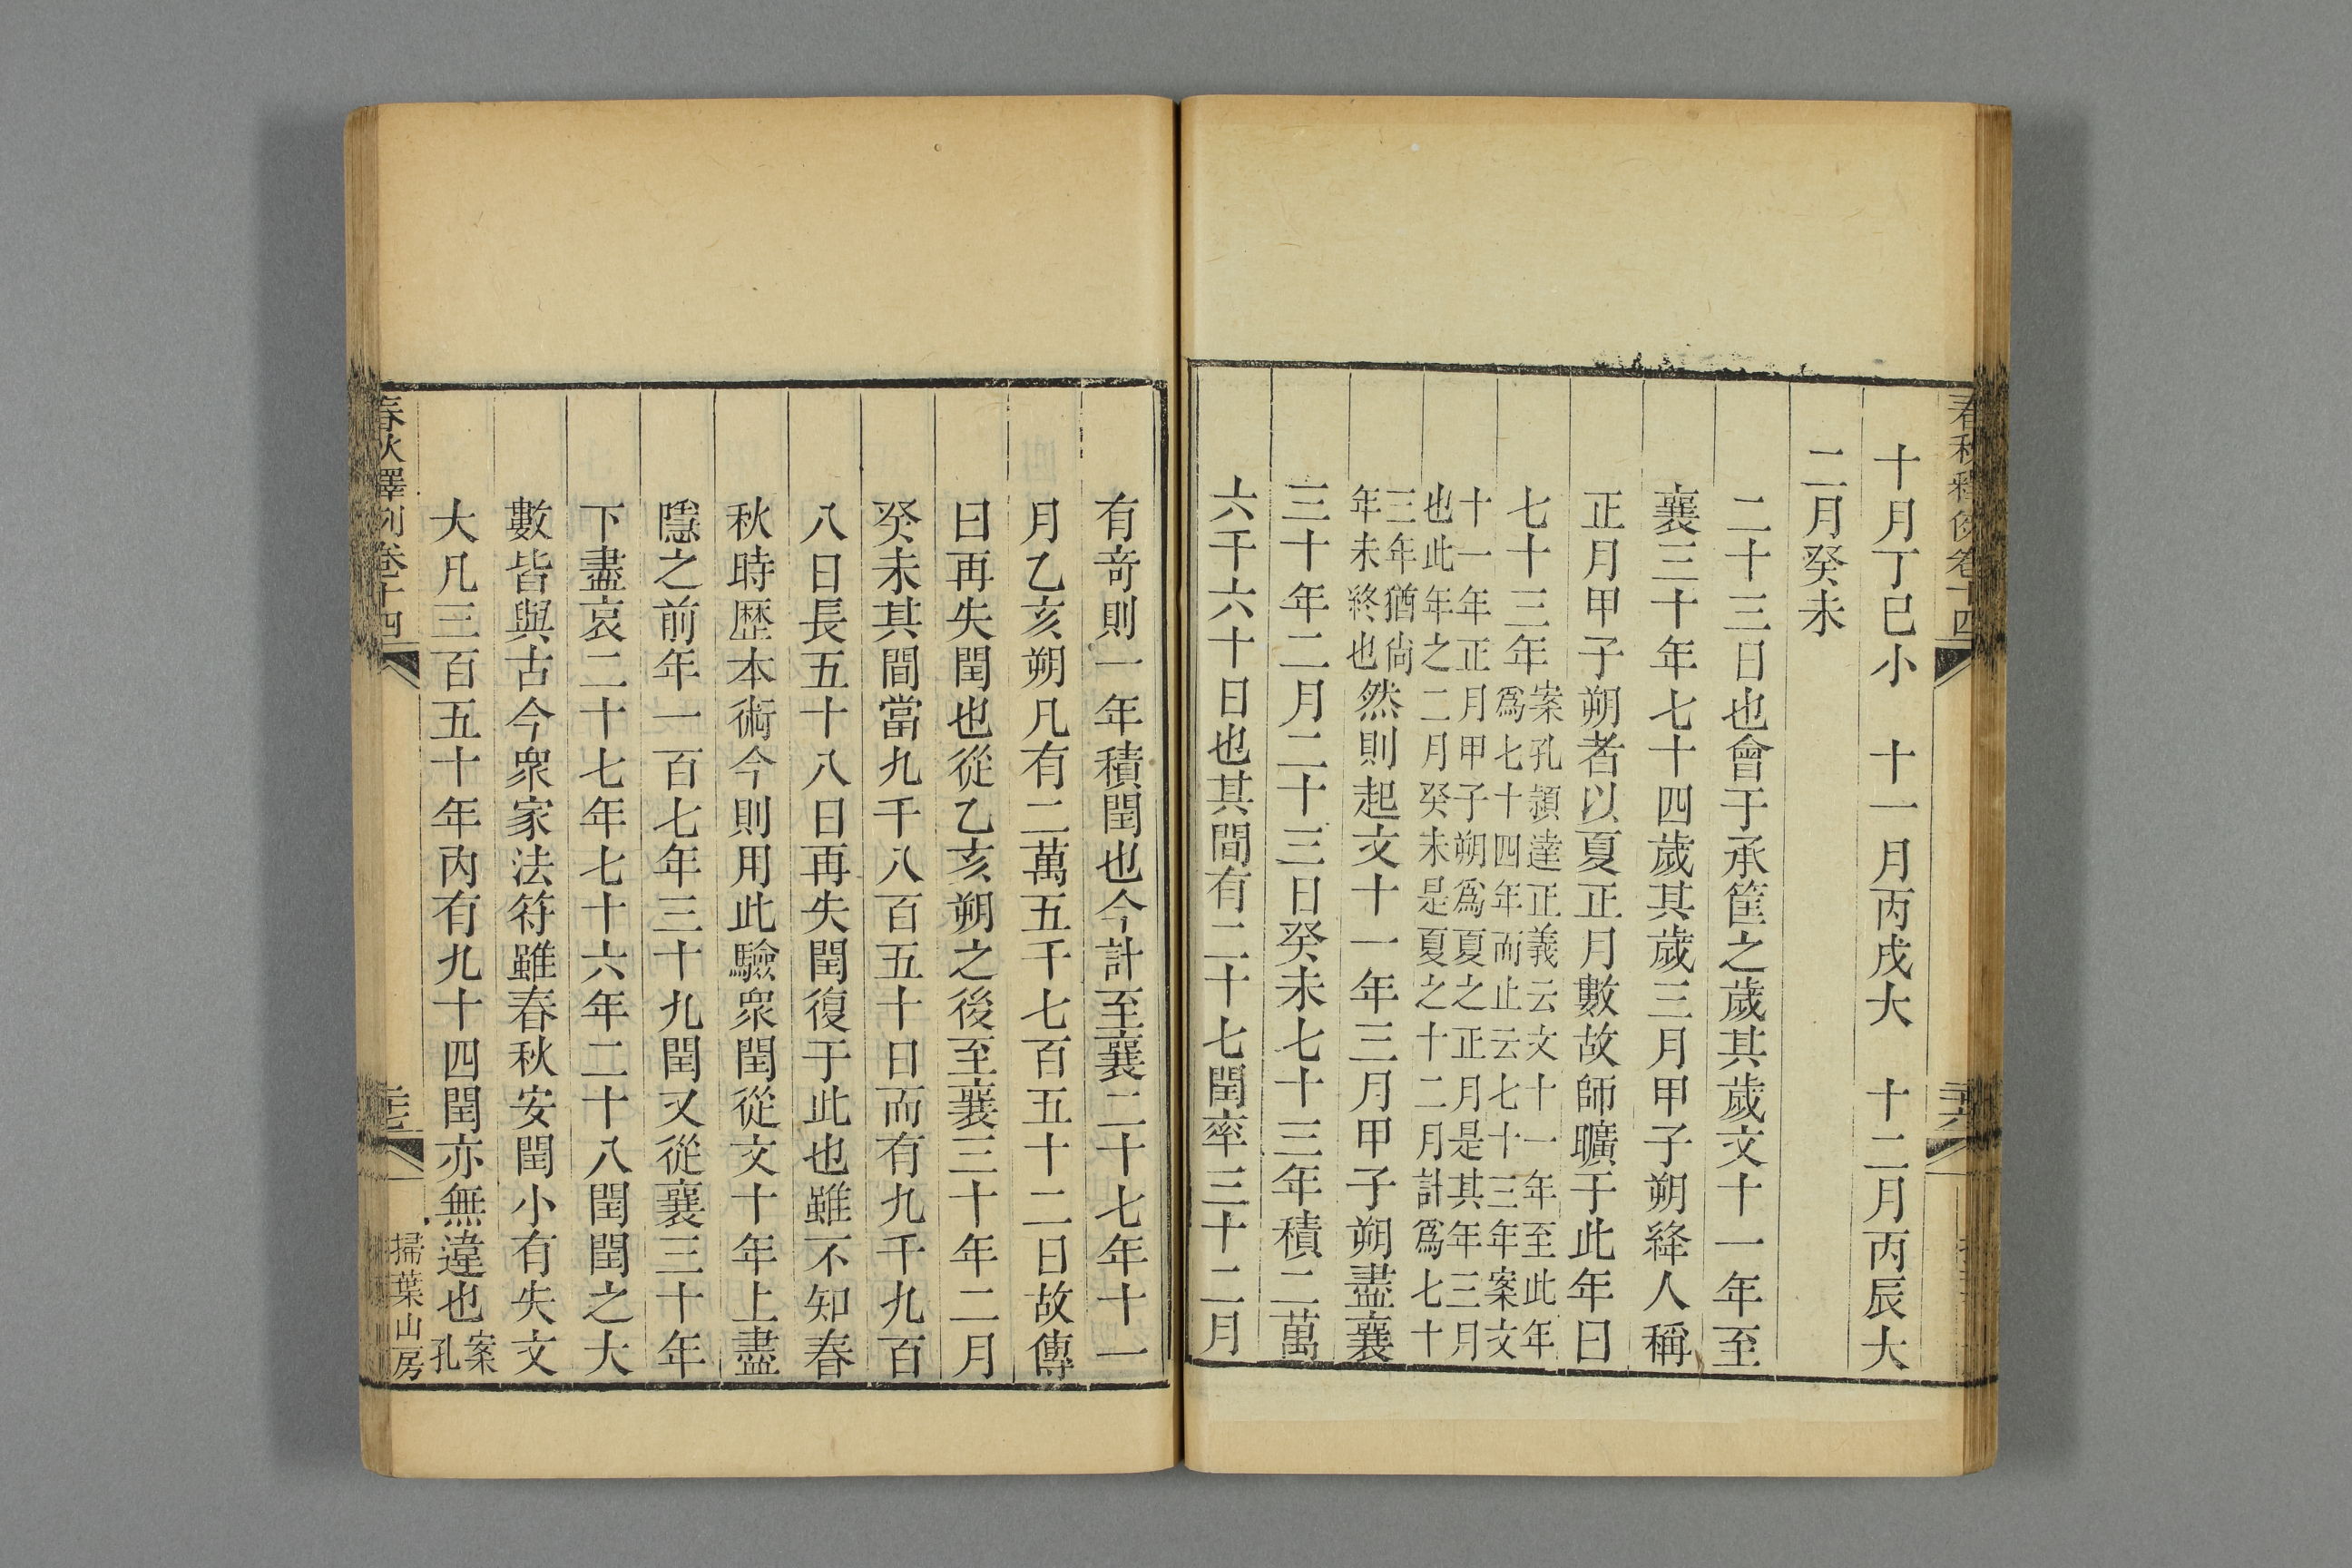 春秋釋例卷十四
十月丁巳小　十一月丙戌大　十二月丙辰大
二月癸未
二十三日也會于承筐之歲其歲文十一年至
襄三十年七十四歲其歲三月甲子朔絳人稱
正月甲子朔者以夏正月數故師曠于此年曰
七十三年案孔頴達正義云文十一年至此年
爲七十四年而止云七十三年案文
十一年正月甲子朔爲夏之正月是其年三月
也此年之二月癸未是夏之十二月計爲七十
三年猶尚
年未終也然則起文十一年三月甲子朔盡襄
三十年二月二十三日癸未七十三年積二萬
六千六十日也其間有二十七閏率三十二月
有竒則一年積閏也今計至襄二十七年十一
月乙亥朔凡有二萬五千七百五十二日故傳
曰再失閏也從乙亥朔之後至襄三十年二月
癸未其間當九千八百五十日而有九千九百
八日長五十八日再失閏復于此也雖不知春
秋時歴本術今則用此驗衆閏從文十年上盡
隱之前年一百七年三十九閏又從襄三十年
下盡哀二十七年七十六年二十八閏閏之大
數皆與古今衆家法符雖春秋安閏小有失文
大凡三百五十年内有九十四閏亦無違也案
孔
春秋釋例卷十四
掃葉山房